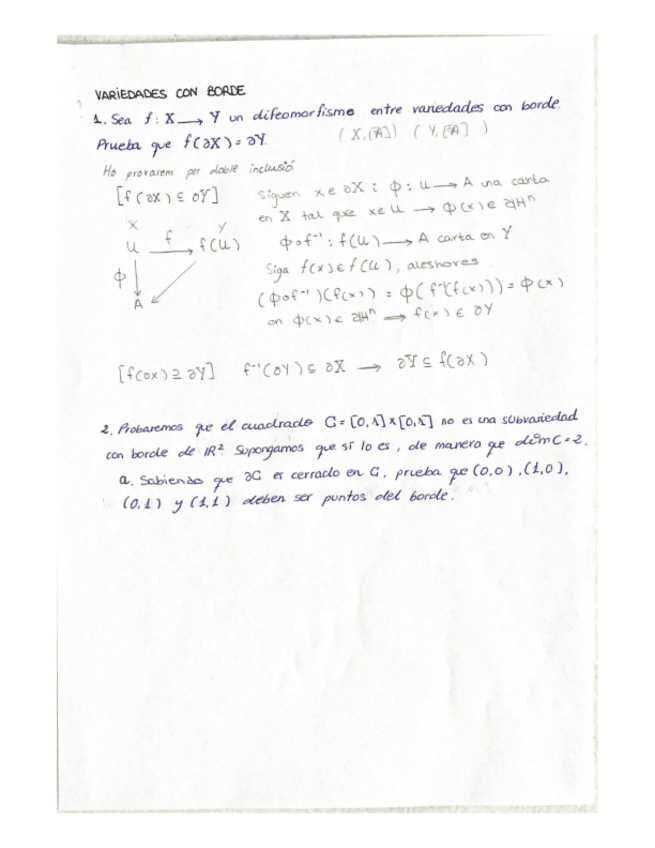 VARIEDADES CON BORDE
1. Sea f: X → Y un difeomorfismo entre variedades con borde.
Prueba que f(∂X) = ∂Y. (X,[A]) (Y,[A])
Ho provarem per doble inclusió
[f(∂X) ⊆ ∂Y] Siguen x ∈ ∂X i φ: U → A una carta
en X tal que x ∈ U → φ(x) ∈ ∂Hⁿ
X Y
U f→ f(U) φ∘f⁻¹: f(U) → A carta en Y
φ Siga f(x) ∈ f(U), aleshores
A (φ∘f⁻¹)(f(x)) = φ(f⁻¹(f(x))) = φ(x)
on φ(x) ∈ ∂Hⁿ ⟹ f(x) ∈ ∂Y
[f(∂X) ⊇ ∂Y] f⁻¹(∂Y) ⊆ ∂X → ∂Y ⊆ f(∂X)
2. Probaremos que el cuadrado C = [0,1]×[0,1] no es una subvariedad
con borde de IR² Supongamos que sí lo es, de manera que dim C = 2.
a. Sabiendo que ∂C es cerrado en C, prueba que (0,0), (1,0),
(0,1) y (1,1) deben ser puntos del borde.